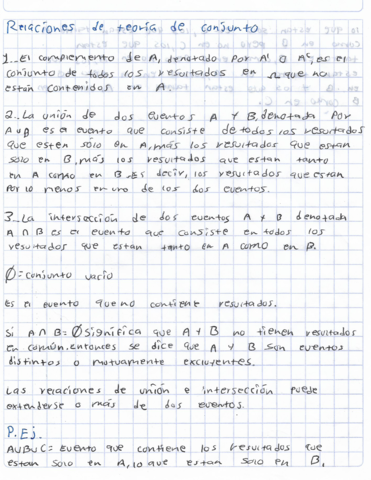 Relaciones de teoría de conjunto
1.. El complemento de A, denotado por A' o Aᶜ, es el
conjunto de todos los resultados en Ω que no
están contenidos en A
2.. La unión de dos eventos A y B, denotada Por
A∪B es el evento que consiste de todos los resultados
que esten sólo en A, más los resultados que estan
solo en B, más los resultados que estan tanto
en A como en B. Es decir, los resultados que estan
Por lo menos en uno de los dos eventos.
3.. La intersección de dos eventos A y B denotada
A ∩ B es el evento que consiste en todos los
resultados que estan tanto en A como en B.
Ø = conjunto vacio
Es el evento que no contiene resultados.
Si A ∩ B = Ø Significa que A y B no tienen resultados
en común. entonces se dice que A y B son eventos
distintos o mutuamente excluyentes.
Las relaciones de unión e intersección puede
extenderse a más de dos eventos.
P. Ej.
A∪B∪C = Evento que contiene los resultados que
estan solo en A, lo que estan solo en B,